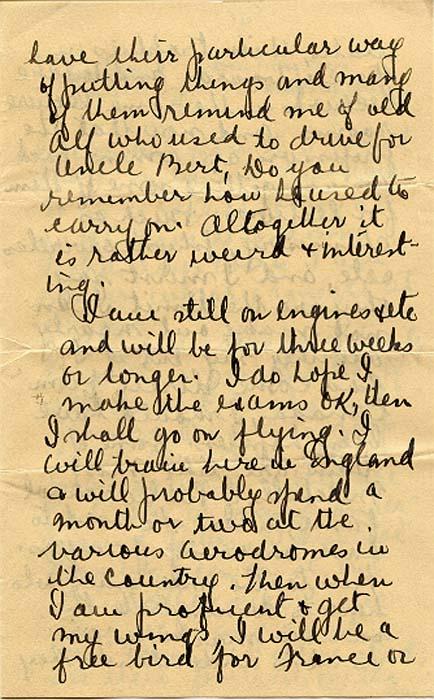 have their particular way
of putting things and many
of them remind me of old
Alf who used to drive for
Uncle Bert, Do you
remember how he used to
carry on. Altogether it
is rather weird & interest-
ing.
I am still on engines & etc
and will be for three weeks
or longer. I do hope I
make the exams OK, then
I shall go on flying. I
will train here in England
& will probably spend a
month or two at the
various aerodromes in
the country. Then when
I am proficient & get
my wings, I will be a
free bird for France or